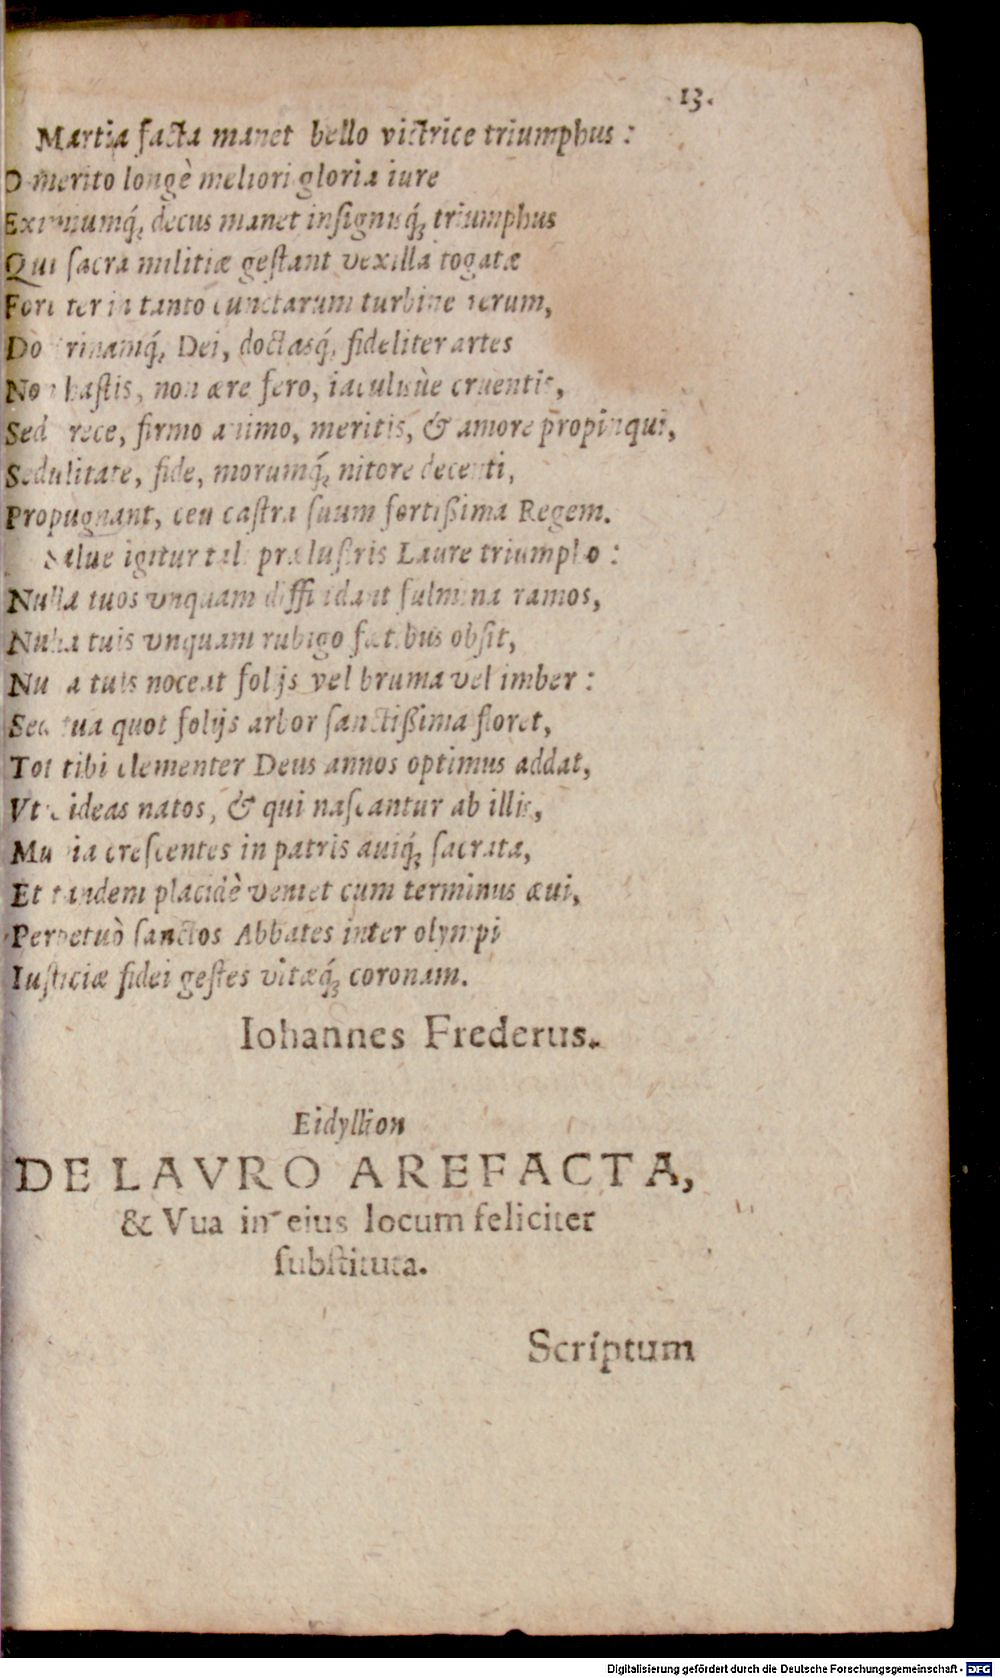 13.
Martia facta manet bello victrice triumphus:
O merito longè meliori gloria iure
Eximiumq́; decus manet insignisq́; triumphus
Qui sacra militiæ gestant vexilla togatæ
Fortiter in tanto cunctarum turbine rerum,
Doctrinamq́; Dei, doctasq́; fideliter artes
Non hastis, non ære fero, iaculisùe cruentis,
Sed prece, firmo animo, meritis, & amore propinqui,
Sedulitate, fide, morumq́; nitore decenti,
Propugnant, ceu castra suum fortißima Regem.
Salue igitur tali prælustris Laure triumpho:
Nulla tuos vnquam diffindant fulmina ramos,
Nulla tuis vnquam rubigo fœtibus obsit,
Nulla tuis noceat folijs vel bruma vel imber:
Sed tua quot folijs arbor sanctißima floret,
Tot tibi clementer Deus annos optimus addat,
Vt videas natos, & qui nascantur ab illis,
Munia crescentes in patris auiq́; sacrata,
Et tandem placidè veniet cum terminus æui,
Perpetuò sanctos Abbates inter olympi
Iusticiæ fidei gestes vitæq́; coronam.
Iohannes Frederus.
Eidyllion
DE LAVRO AREFACTA,
& Vua in eius locum feliciter
substituta.
Scriptum
Digitalisierung gefördert durch die Deutsche Forschungsgemeinschaft - DFG